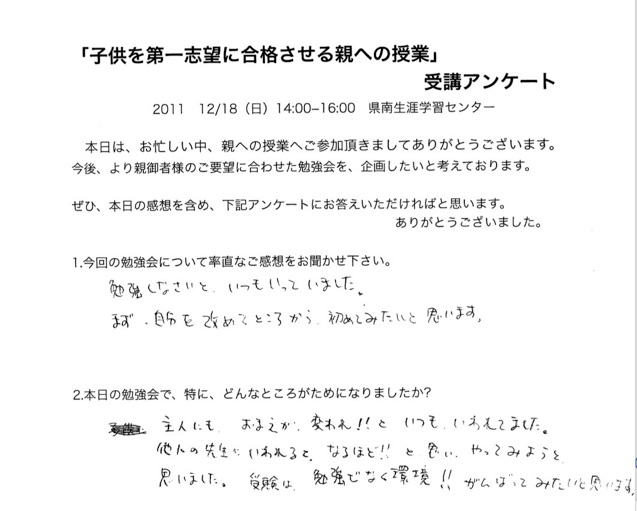 「子供を第一志望に合格させる親への授業」
受講アンケート
2011 12/18（日）14:00−16:00 県南生涯学習センター
本日は、お忙しい中、親への授業へご参加頂きましてありがとうございます。
今後、より親御者様のご要望に合わせた勉強会を、企画したいと考えております。
ぜひ、本日の感想を含め、下記アンケートにお答えいただければと思います。
ありがとうございました。
1.今回の勉強会について率直なご感想をお聞かせ下さい。
勉強しなさいと、いつもいっていました。
まず、自分を改めてところから、初めてみたいと思います。
2.本日の勉強会で、特に、どんなところがためになりましたか?
主人にも、おまえが、変われ!!と いつも、いわれてました。
他人の先生にいわれると、なるほど!!と思い、やってみようと、
思いました。受験は、勉強でなく環境!!がんばってみたいと思います。